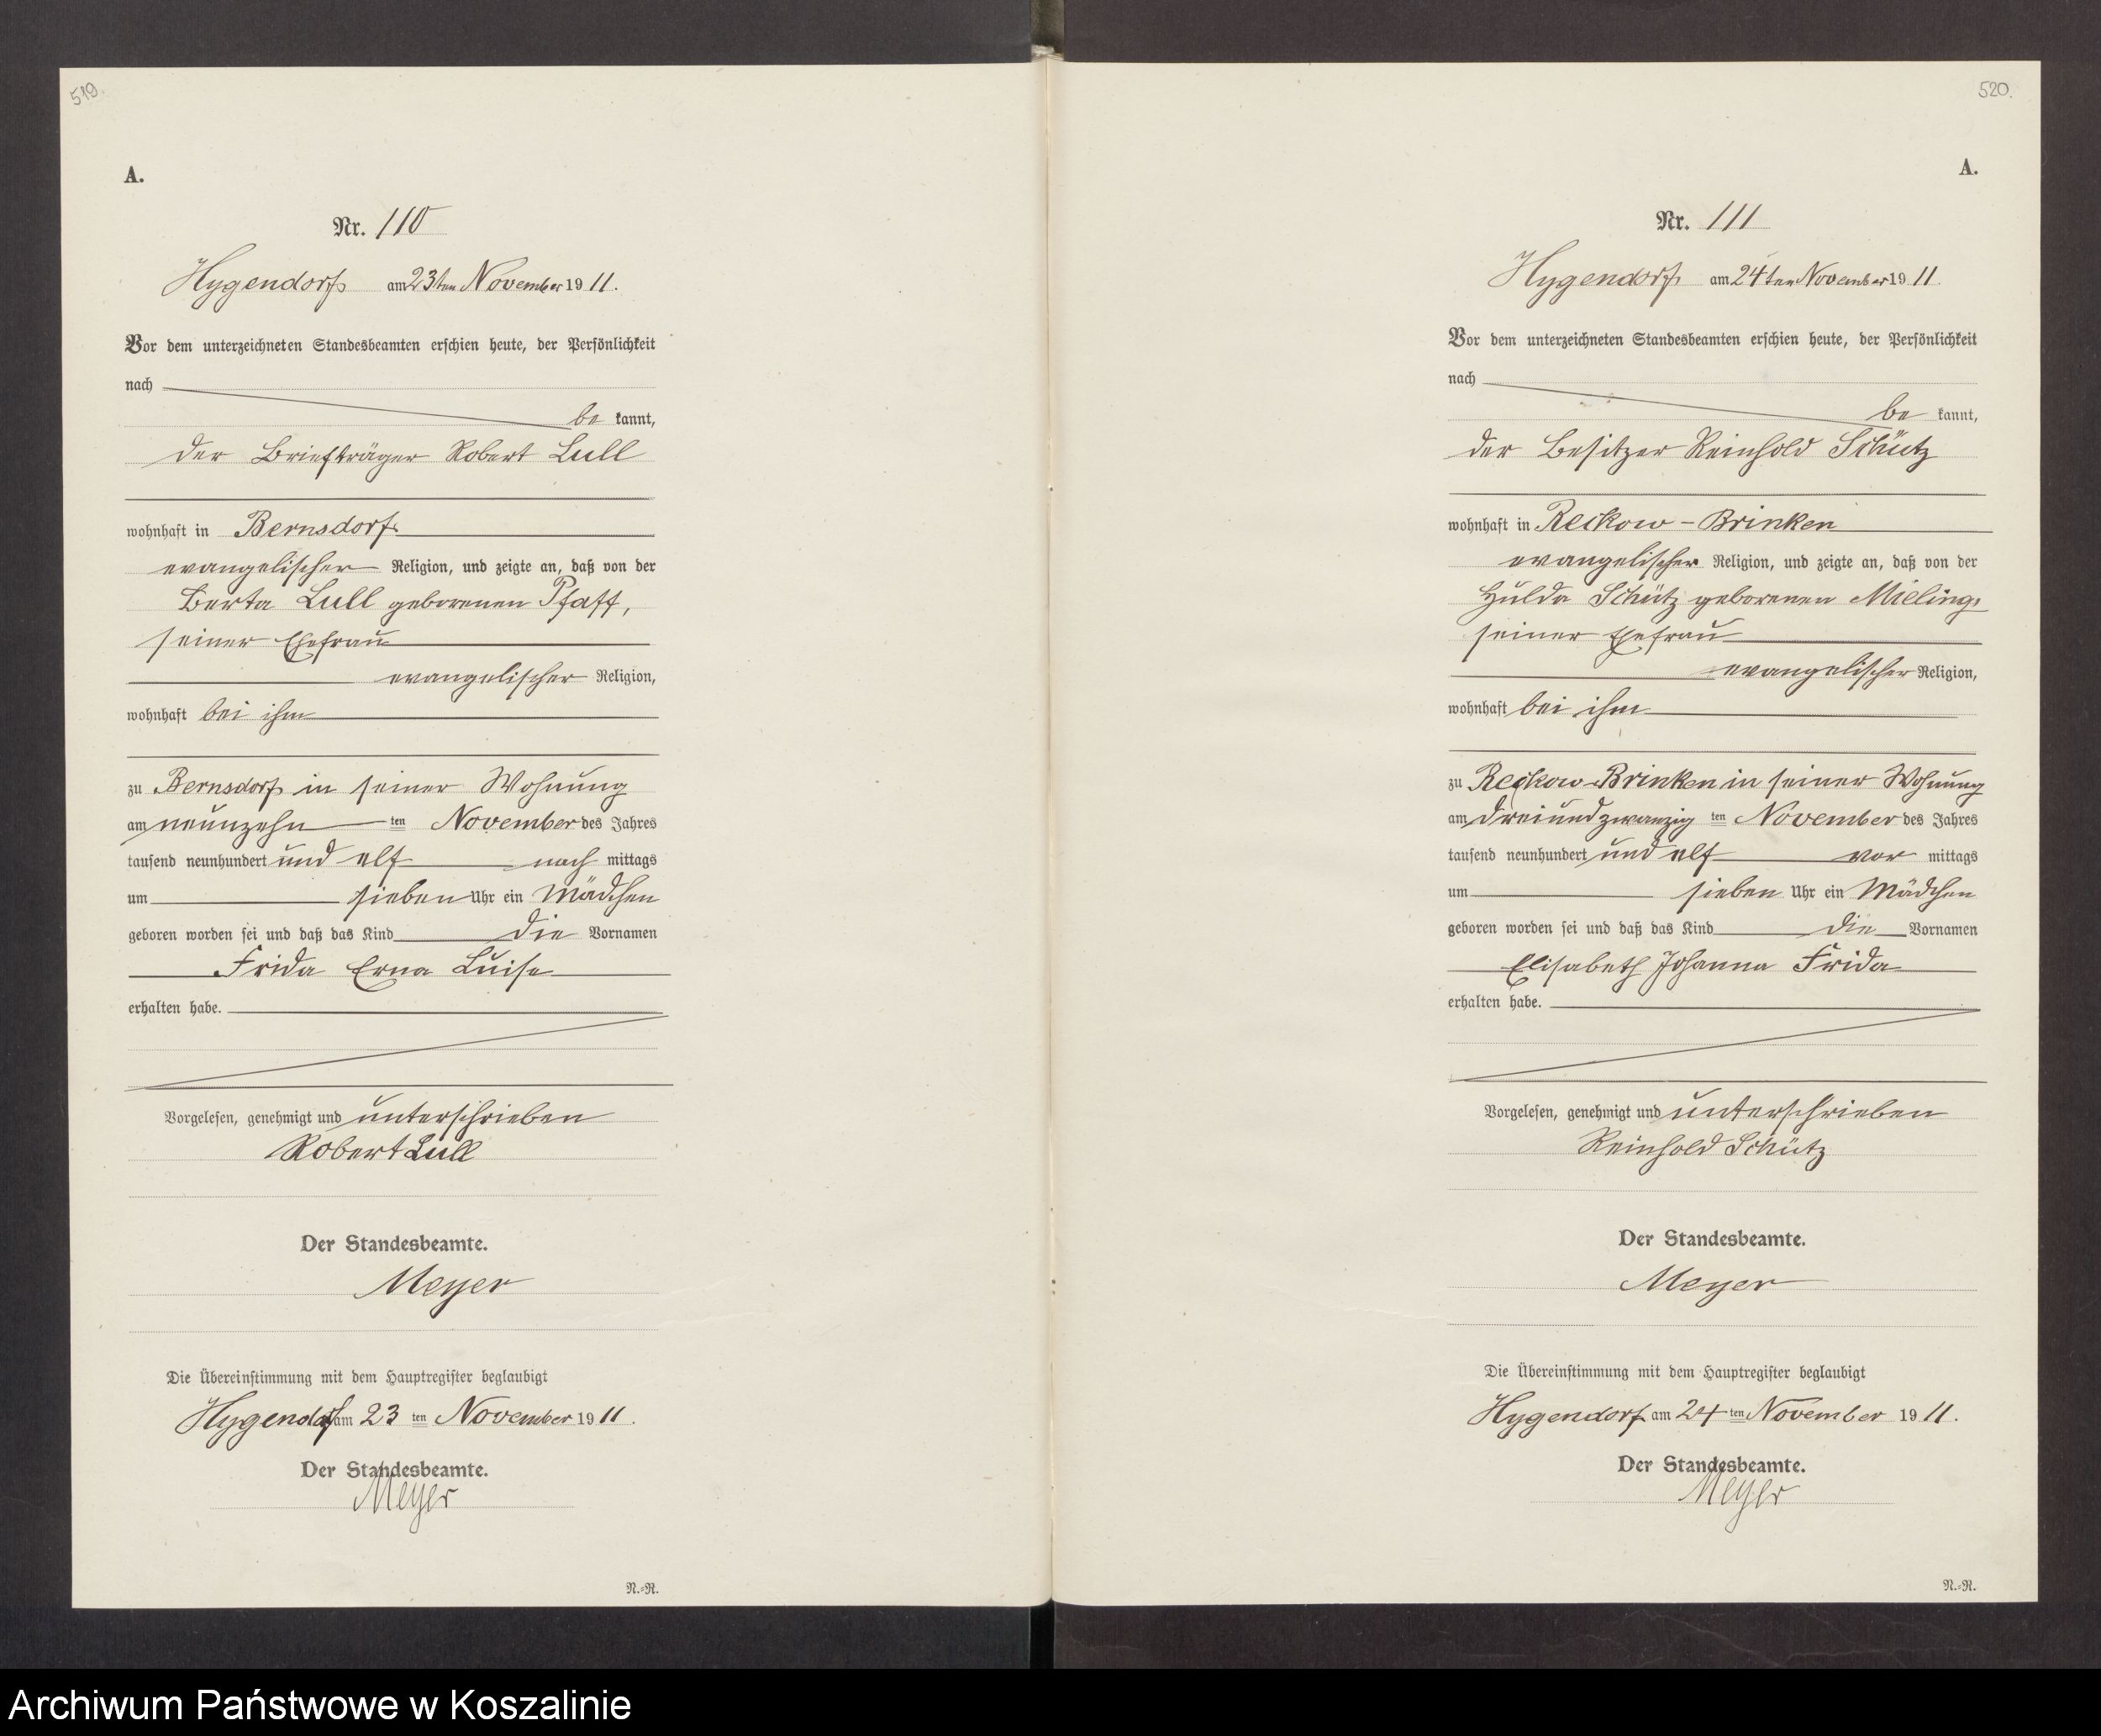 519.
A.
Nr. 110
Hygendorf am 23ten November 1911.
Vor dem unterzeichneten Standesbeamten erschien heute, der Persönlichkeit
nach
be kannt,
der Briefträger Robert Lull
wohnhaft in Bernsdorf
evangelischer Religion, und zeigte an, daß von der
Berta Lull geborenen Pfaff,
seiner Ehefrau
evangelischer Religion,
wohnhaft bei ihm
zu Bernsdorf in seiner Wohnung
am neunzehn ten November des Jahres
tausend neunhundert und elf nach mittags
um sieben Uhr ein Mädchen
geboren worden sei und daß das Kind die Vornamen
Frida Erna Luise
erhalten habe.
Vorgelesen, genehmigt und unterschrieben
Robert Lull
Der Standesbeamte.
Meyer
Die Übereinstimmung mit dem Hauptregister beglaubigt
Hygendorf am 23 ten November 1911.
Der Standesbeamte.
Meyer
N.=R.
520.
A.
Nr. 111
Hygendorf am 24ten November 1911.
Vor dem unterzeichneten Standesbeamten erschien heute, der Persönlichkeit
nach
be kannt,
der Besitzer Reinhold Schütz
wohnhaft in Reckow-Brinken
evangelischer Religion, und zeigte an, daß von der
Hulda Schütz geborenen Mieling,
seiner Ehefrau
evangelischer Religion,
wohnhaft bei ihm
zu Reckow-Brinken in seiner Wohnung
am dreiundzwanzig ten November des Jahres
tausend neunhundert und elf vor mittags
um sieben Uhr ein Mädchen
geboren worden sei und daß das Kind die Vornamen
Elisabeth Johanna Frida
erhalten habe.
Vorgelesen, genehmigt und unterschrieben
Reinhold Schütz
Der Standesbeamte.
Meyer
Die Übereinstimmung mit dem Hauptregister beglaubigt
Hygendorf am 24 ten November 1911.
Der Standesbeamte.
Meyer
N.=R.
Archiwum Państwowe w Koszalinie